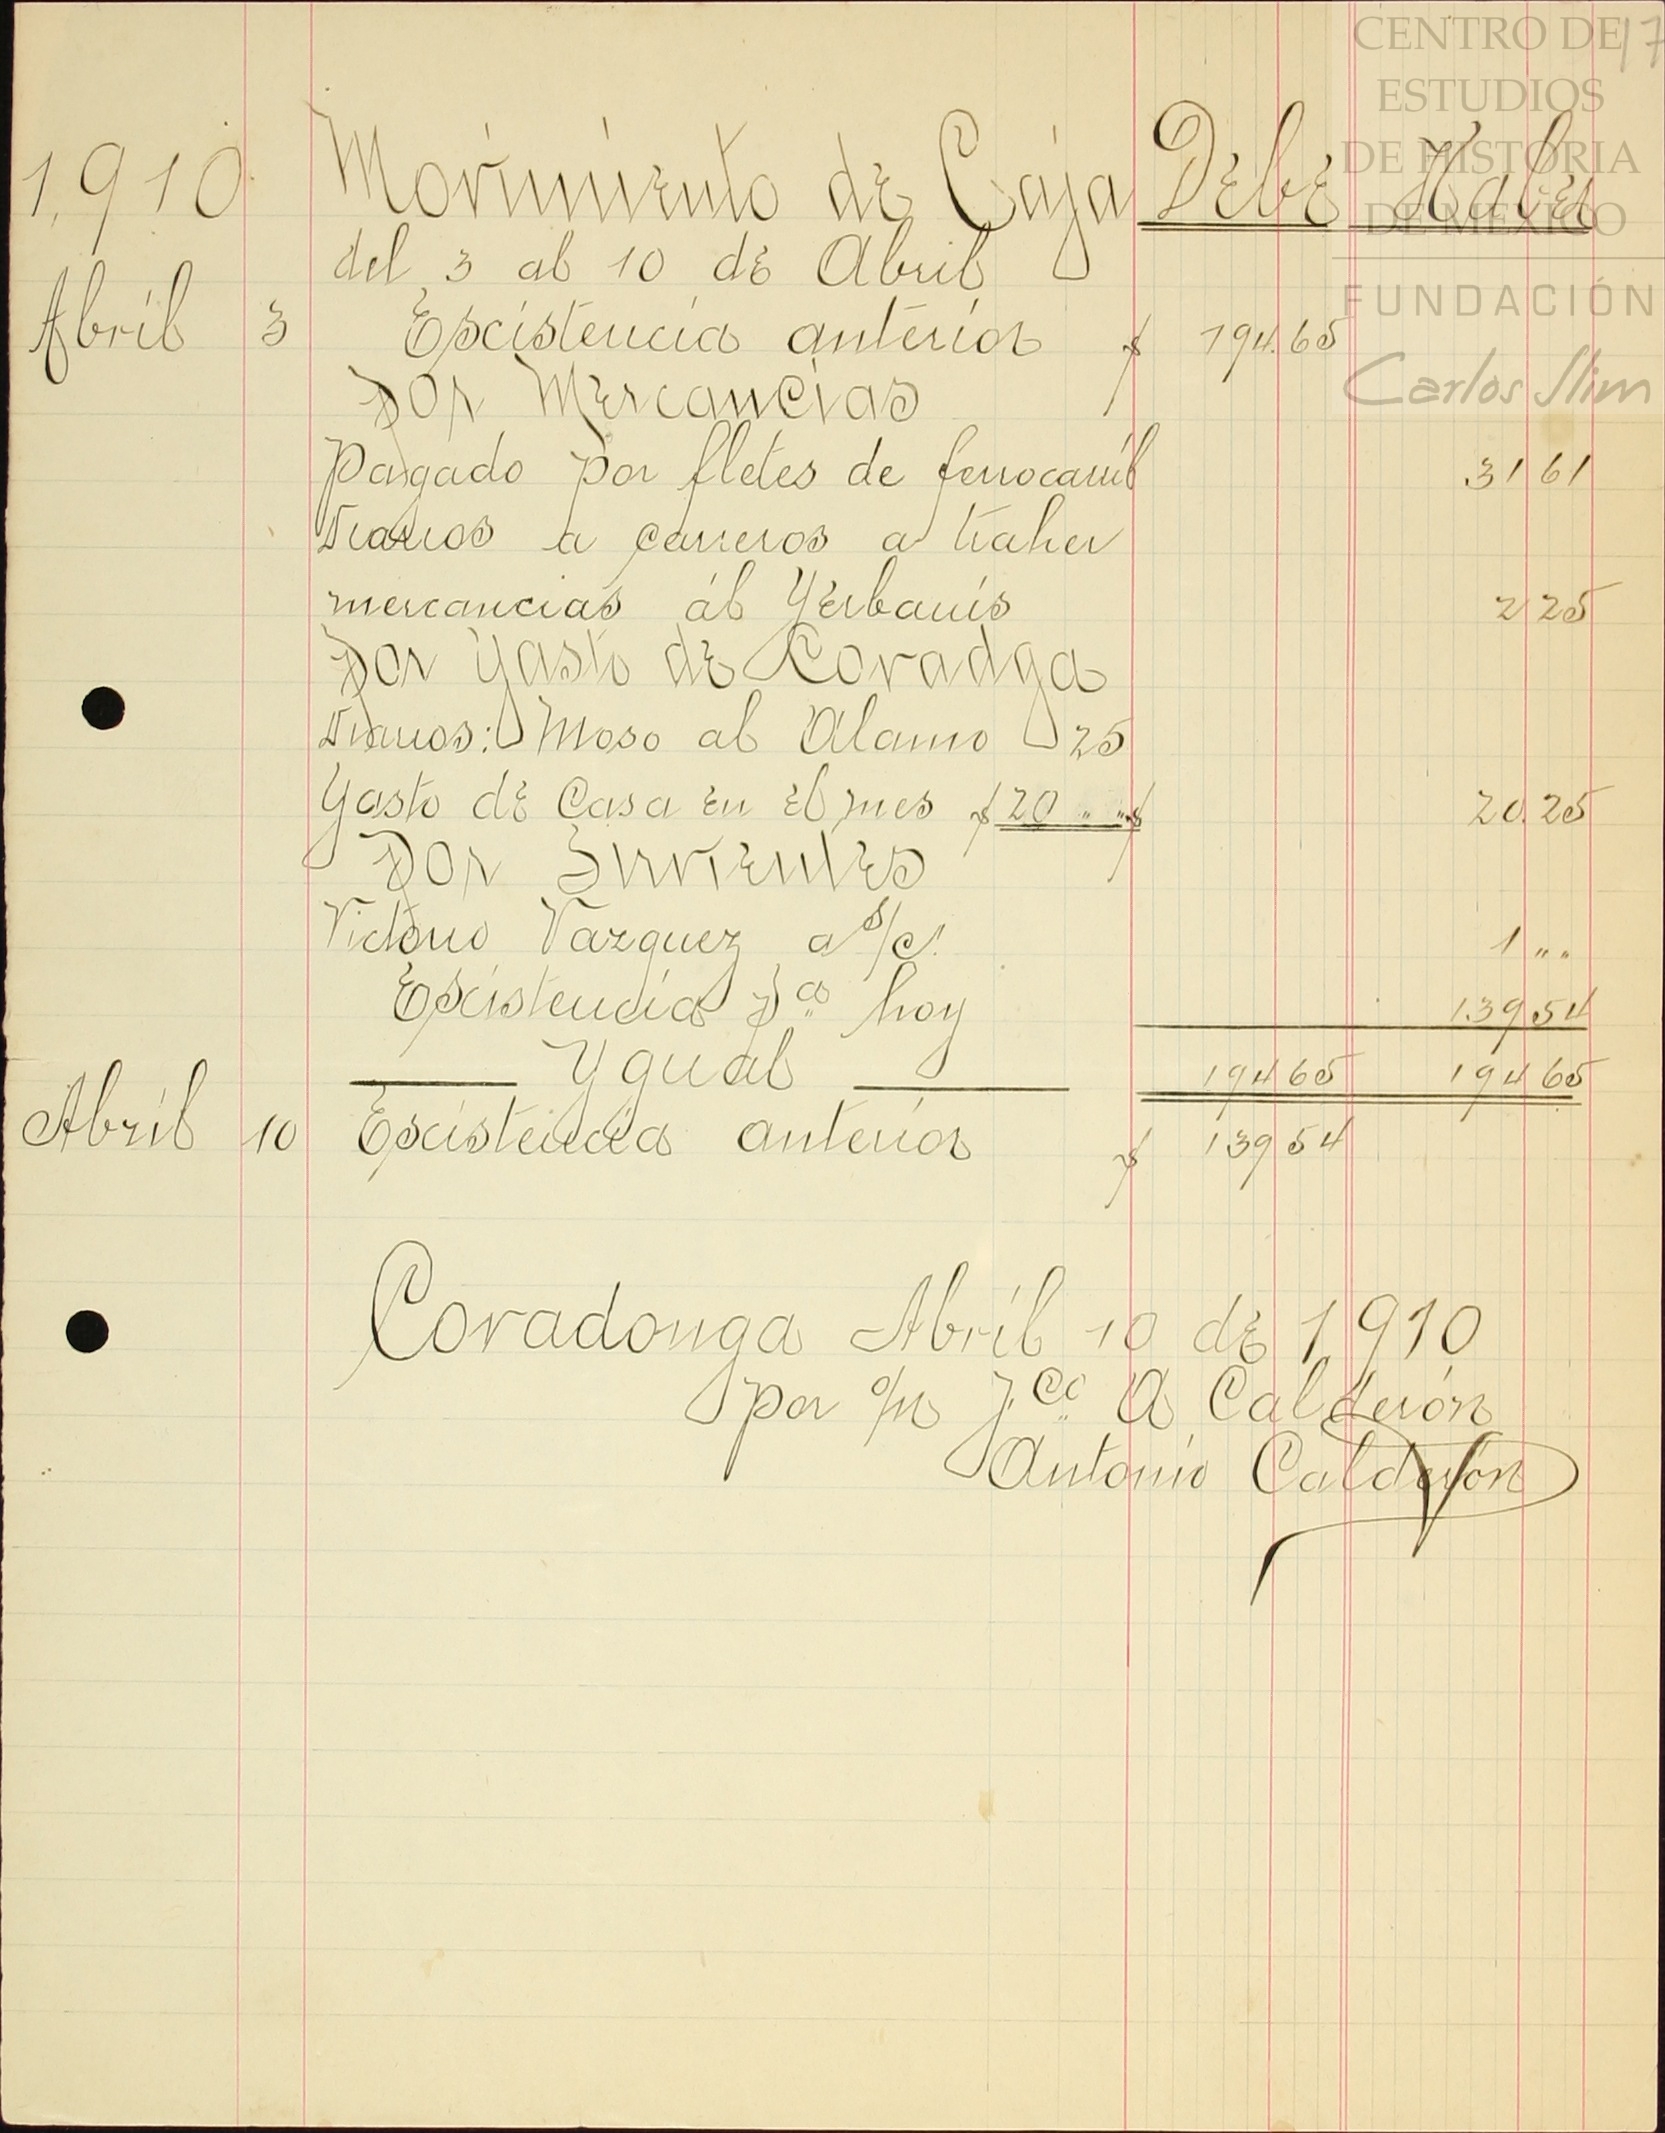 CENTRO DE 17
ESTUDIOS
DE HISTORIA
DE MEXICO
FUNDACIÓN
Carlos Slim
1,910 Movimiento de Caja Debe Haber
del 3 al 10 de Abril
Abril 3 Escistencia anterior $ 194.65
Por Mercancias
Pagado por fletes de ferrocarril 31 61
Diarios a carreros a traher
mercancias al Yerbanis 2 25
Por Gasto de Covadga
Diarios: Moso al Alamo 25
Gasto de Casa en el mes $ 20 " " $ 20.25
Por Sirvientes
Victorio Vazquez a s/c. 1 " "
Escistencia pa hoy 139 54
Ygual 194 65 194 65
Abril 10 Escistencia anterior $ 139 54
Covadonga Abril 10 de 1,910
por o/n J. Co A Calderón
Antonio Calderón